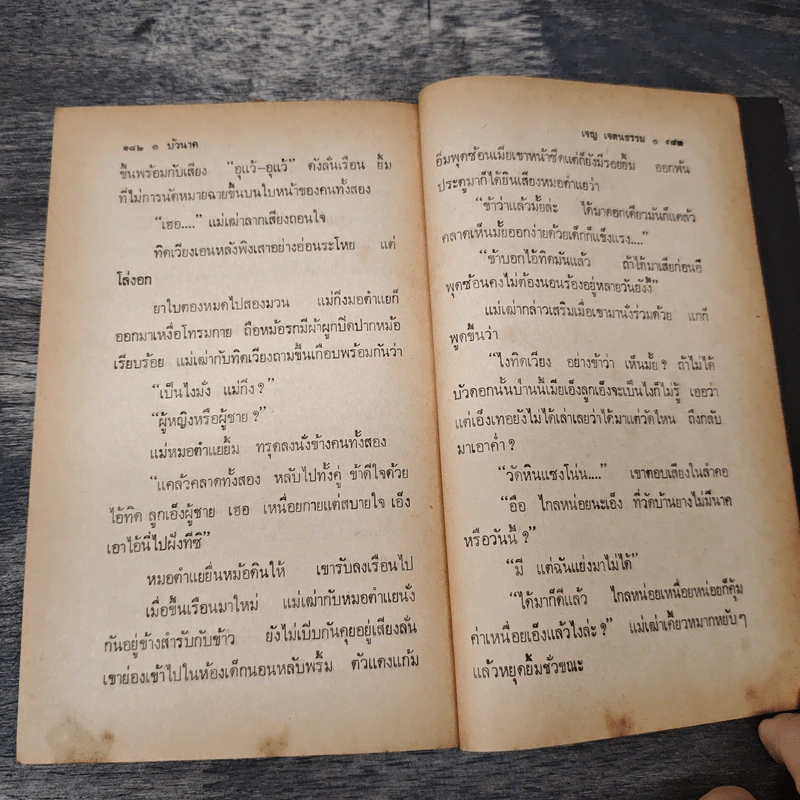 ๑๘๒ ๏ บัวนาค
ขึ้นพร้อมกับเสียง “อุแว้-อุแว้” ดังลั่นเรือน ยิ้ม
ที่ไม่การนัดหมายฉายขึ้นบนใบหน้าของคนทั้งสอง
“เฮอ....” แม่เฒ่าลากเสียงถอนใจ
ทิดเวียงเอนหลังพิงเสาอย่างอ่อนระโหย แต่
โล่งอก
ยาใบตองหมดไปสองมวน แม่กึ่งมอตำแยก็
ออกมาเหงื่อโทรมกาย ถือหม้อรกมีผ้าผูกปิดปากหม้อ
เรียบร้อย แม่เฒ่ากับทิดเวียงถามขึ้นเกือบพร้อมกันว่า
“เป็นไงมั่ง แม่กึ่ง ?”
“ผู้หญิงหรือผู้ชาย ?”
แม่หมอตำแยยิ้ม ทรุดลงนั่งข้างคนทั้งสอง
“แคล้วคลาดทั้งสอง หลับไปทั้งคู่ ข้าดีใจด้วย
ไอ้ทิด ลูกเอ็งผู้ชาย เฮอ เหนื่อยกายแต่สบายใจ เอ็ง
เอาไอ้นี่ไปฝังทีซิ”
หมอตำแยยื่นหม้อดินให้ เขารับลงเรือนไป
เมื่อขึ้นเรือนมาใหม่ แม่เฒ่ากับหมอตำแยนั่ง
กันอยู่ข้างสำรับกับข้าว ยังไม่เปิบกันคุยอยู่เสียงลั่น
เขาย่องเข้าไปในห้องเด็กนอนหลับพริ้ม ตัวแดงแก้ม
เจญ เจตนธรรม ๏ ๑๘๓
อิ่มพุดซ้อนเมียเขาหน้าซีดแต่ก็ยังมีรอยยิ้ม ออกพ้น
ประตูมาก็ได้ยินเสียงหมอตำแยว่า
“ข้าว่าแล้วมั้ยล่ะ ได้มาดอกเดียวมันก็แคล้ว
คลาดเห็นมั้ยออกง่ายด้วยเด็กก็แข็งแรง....”
“ข้าบอกไอ้ทิดมันแล้ว ถ้าได้มาเสียก่อนอี
พุดซ้อนคงไม่ต้องนอนร้องอยู่หลายวันยังงี้”
แม่เฒ่ากล่าวเสริมเมื่อเขามานั่งร่วมด้วย แกก็
พูดขึ้นว่า
“ไงทิดเวียง อย่างข้าว่า เห็นมั้ย ? ถ้าไม่ได้
บัวดอกนั้นป่านนี้เมียเอ็งลูกเอ็งจะเป็นไงก็ไม่รู้ เออว่า
แต่เอ็งเทอยังไม่ได้เล่าเลยว่าได้มาแต่วัดไหน ถึงกลับ
มาเอาค่ำ ?
“วัดหินแซงโน่น....” เขาตอบเสียงในลำคอ
“อือ ไกลหน่อยนะเอ็ง ที่วัดบ้านยางไม่มีนาค
หรือวันนี้ ?”
“มี แต่ฉันแย่งมาไม่ได้”
“ได้มาก็ดีแล้ว ไกลหน่อยเหนื่อยหน่อยก็คุ้ม
ค่าเหนื่อยเอ็งแล้วไงล่ะ ?” แม่เฒ่าเคี้ยวหมากหยับๆ
แล้วหยุดยิ้มชั่วขณะ